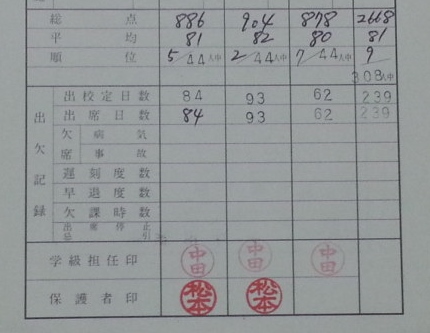 総点 886 904 878 2668
平均 81 82 80 81
順位 5/44人中 2/44人中 7/44人中 9/308人中
出欠記録
出校定日数 84 93 62 239
出席日数 84 93 62 239
欠席 病気
事故
遅刻度数
早退度数
欠課時数
出席停止
忌引
学級担任印 中田 中田 中田
保護者印 松本 松本